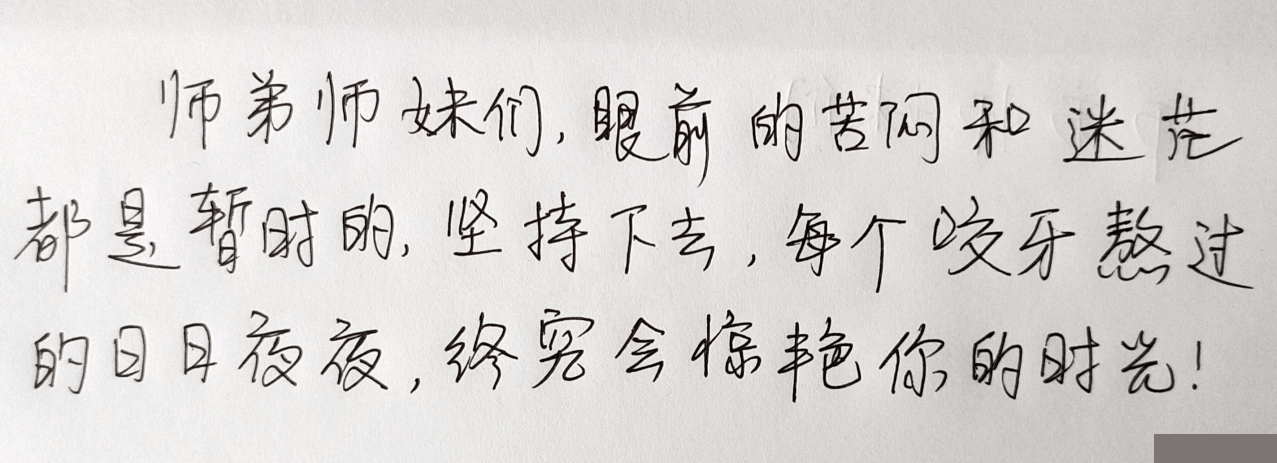 师弟师妹们,眼前的苦闷和迷茫
都是暂时的,坚持下去,每个咬牙熬过
的日日夜夜,终究会惊艳你的时光!